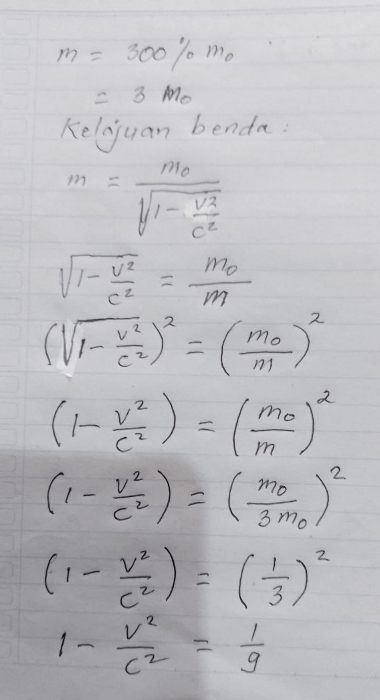 m = 300 % m₀
= 3 m₀
Kelajuan benda :
m = m₀ / √(1 - v²/c²)
√(1 - v²/c²) = m₀/m
(√(1 - v²/c²))² = (m₀/m)²
(1 - v²/c²) = (m₀/m)²
(1 - v²/c²) = (m₀/3m₀)²
(1 - v²/c²) = (1/3)²
1 - v²/c² = 1/9